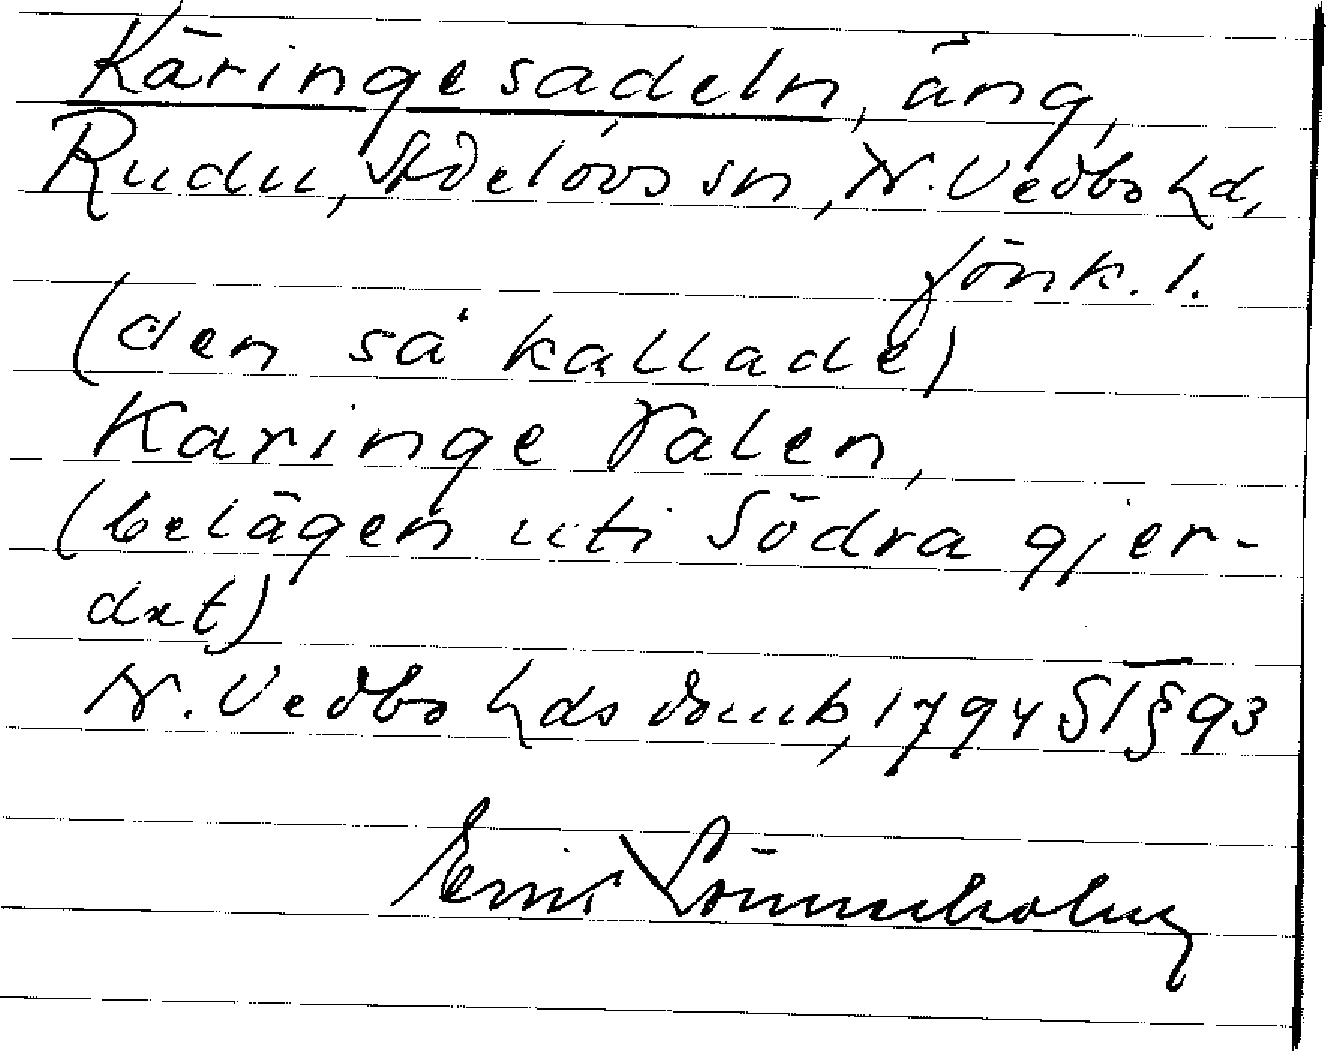 Käringesadeln, äng,
Rudu, Stdelövs sn, N. Vedbo hd,
Jönk. l.
(den så kallade)
Karinge Valen,
(belägen uti Södra gjer-
det)
N. Vedbo hds domb, 1794 § 93